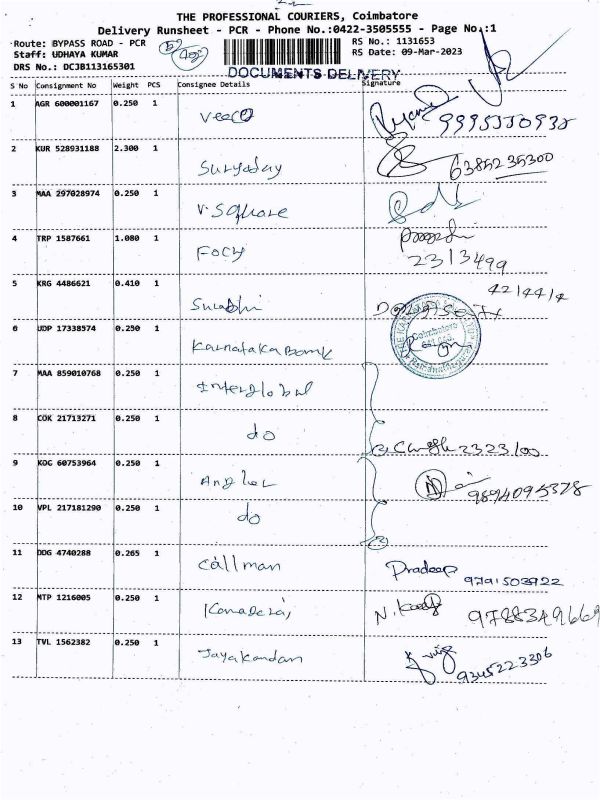 THE PROFESSIONAL COURIERS, Coimbatore
Delivery Runsheet - PCR - Phone No.:0422-3505555 - Page No.:1
Route: BYPASS ROAD - PCR
Staff: UDHAYA KUMAR
DRS No.: DCJB113165301
RS No.: 1131653
RS Date: 09-Mar-2023
DOCUMENTS DELIVERY
S No Consignment No Weight PCS Consignee Details Signature
1 AGR 600001167 0.250 1 Veeco 9995550938
2 KUR 528931188 2.300 1 Suryaday 6385235300
3 MAA 297028974 0.250 1 V. Square
4 TRP 1587661 1.080 1 Focy 2313499
5 KRG 4486621 0.410 1 Surabhi 4214414
6 UDP 17338574 0.250 1 Karnataka Bank
7 MAA 859010768 0.250 1 Interglobal
8 COK 21713271 0.250 1 do 2323100
9 KDG 60753964 0.250 1 Angler 9894095378
10 VPL 217181290 0.250 1 do
11 DDG 4740288 0.265 1 Callman Pradeep 9791503922
12 MTP 1216005 0.250 1 9788349669
13 TVL 1562382 0.250 1 Jayakandan 9345223306